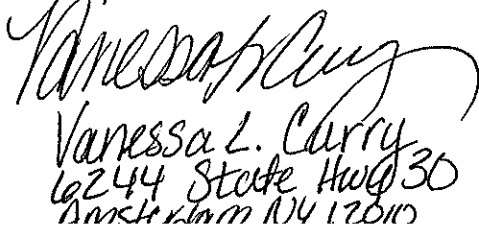 Vanessa L. Curry
Vanessa L. Curry
6244 State Hwy 30
Amsterdam NY 12010